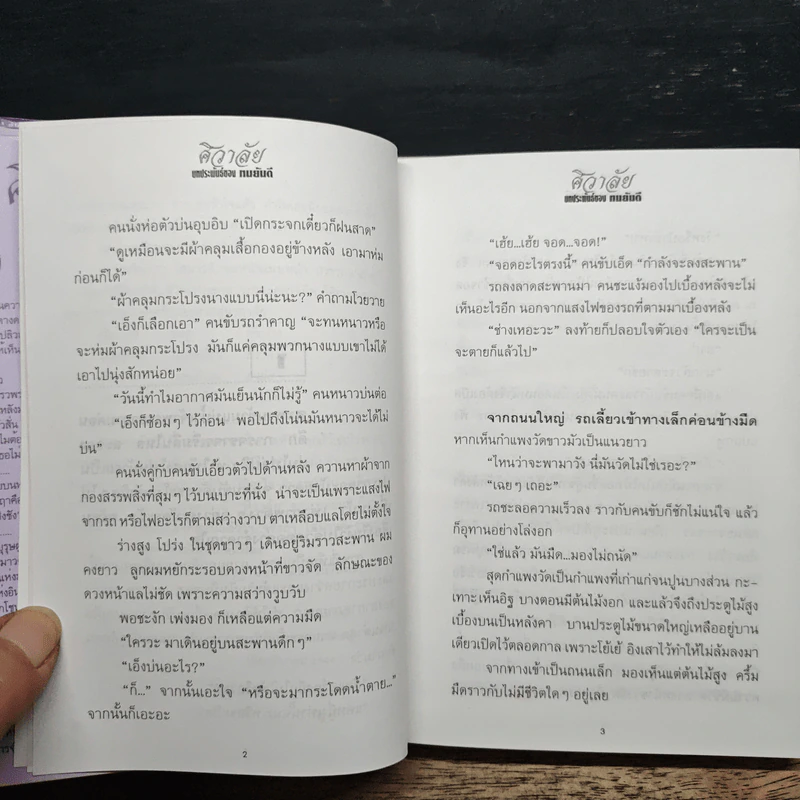 ศิวาลัย
บทประพันธ์ของ ทมยันตี
คนนั่งห่อตัวบ่นอุบอิบ “เปิดกระจกเดี๋ยวก็ฝนสาด”
“ดูเหมือนจะมีผ้าคลุมเสื้อกองอยู่ข้างหลัง เอามาห่ม
ก่อนก็ได้”
“ผ้าคลุมกระโปรงนางแบบนี่น่ะนะ?” คำถามโวยวาย
“เอ็งก็เลือกเอา” คนขับรถรำคาญ “จะทนหนาวหรือ
จะห่มผ้าคลุมกระโปรง มันก็แค่คลุมพวกนางแบบเขาไม่ได้
เอาไปนุ่งสักหน่อย”
“วันนี้ทำไมอากาศมันเย็นนักก็ไม่รู้” คนหนาวบ่นต่อ
“เอ็งก็ซ้อมๆ ไว้ก่อน พอไปถึงโน่นมันหนาวจะได้ไม่
บ่น”
คนนั่งคู่กับคนขับเอี้ยวตัวไปด้านหลัง ควานหาผ้าจาก
กองสรรพสิ่งที่สุมๆ ไว้บนเบาะที่นั่ง น่าจะเป็นเพราะแสงไฟ
จากรถ หรือไฟอะไรก็ตามส่องวาบ ตาเหลือบแลโดยไม่ตั้งใจ
ร่างสูง โปร่ง ในชุดขาวๆ เดินอยู่ริมราวสะพาน ผม
คงยาว ลูกผมหยักระรอบดวงหน้าที่ขาวจัด ลักษณะของ
ดวงหน้าแลไม่ชัด เพราะความสว่างวูบวับ
พอชะงัก เพ่งมอง ก็เหลือแต่ความมืด
“ใครวะ มาเดินอยู่บนสะพานดึกๆ”
“เอ็งบ่นอะไร?”
“ก็...” จากนั้นเอะใจ “หรือจะมากระโดดน้ำตาย...”
จากนั้นก็เอะอะ
2
ศิวาลัย
บทประพันธ์ของ ทมยันตี
“เฮ้ย...เฮ้ย จอด...จอด!”
“จอดอะไรตรงนี้” คนขับเอ็ด “กำลังจะลงสะพาน”
รถลงลาดสะพานมา คนชะแง้มองไปเบื้องหลังจะไม่
เห็นอะไรอีก นอกจากแสงไฟของรถที่ตามมาเบื้องหลัง
“ช่างเหอะวะ” ลงท้ายก็ปลอบใจตัวเอง “ใครจะเป็น
จะตายก็แล้วไป”
จากถนนใหญ่ รถเลี้ยวเข้าทางเล็กค่อนข้างมืด
หากเห็นกำแพงวัดขาวมัวเป็นแนวยาว
“ไหนว่าจะพามาวัง นี่มันวัดไม่ใช่เรอะ?”
“เฉยๆ เถอะ”
รถชะลอความเร็วลง ราวกับคนขับก็ชักไม่แน่ใจ แล้ว
ก็อุทานอย่างโล่งอก
“ใช่แล้ว มันมืด...มองไม่ถนัด”
สุดกำแพงวัดเป็นกำแพงที่เก่าแก่จนปูนบางส่วน กะ-
เทาะเห็นอิฐ บางตอนมีต้นไม้งอก และแล้วจึงถึงประตูไม้สูง
เบื้องบนเป็นหลังคา บานประตูไม้ขนาดใหญ่เหลืออยู่บาน
เดียวเปิดไว้ตลอดกาล เพราะโย้เย้ อิงเสาไว้ทำให้ไม่ล้มลงมา
จากทางเข้าเป็นถนนเล็ก มองเห็นแต่ต้นไม้สูง ครึ้ม
มืดราวกับไม่มีชีวิตใดๆ อยู่เลย
3